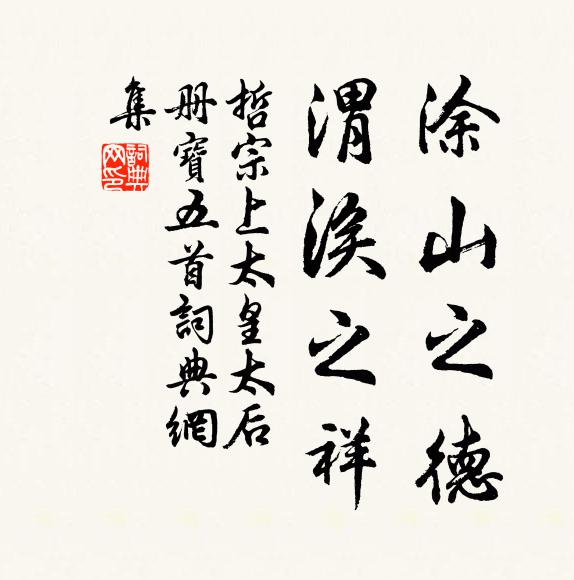 涂山之德
渭涘之祥
哲宗上太皇太后
册寶五首詞典網
集
詞典
网印